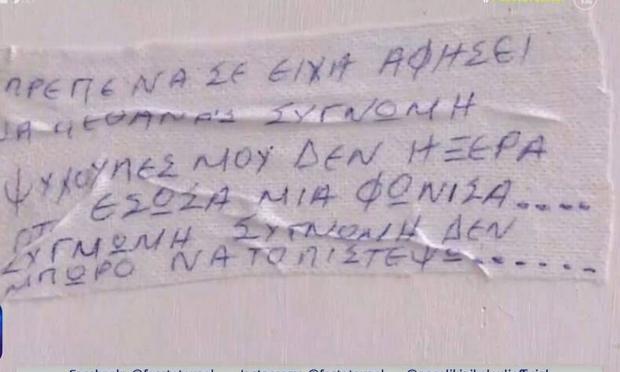 ΠΡΕΠΕ ΝΑ ΣΕ ΕΙΧΑ ΑΦΗΣΕΙ
ΝΑ ΠΕΘΑΝΕΙΣ ΣΥΓΝΩΜΗ
ΨΥΧΟΥΛΕΣ ΜΟΥ ΔΕΝ ΗΞΕΡΑ
ΕΣΩΣΑ ΜΙΑ ΦΩΝΙΣΑ.....
ΣΥΓΝΩΜΗ ΣΥΓΝΩΜΗ ΔΕΝ
ΜΠΩΡΟ ΝΑ ΤΟ ΠΙΣΤΕΨΩ.......